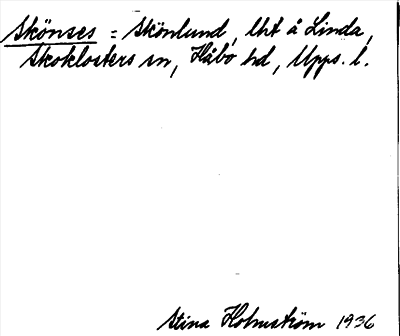 Skönses = Skönlund, lht å Linda,
Skoklosters sn, Håbo hd, Upps. l.
Stina Holmström 1936